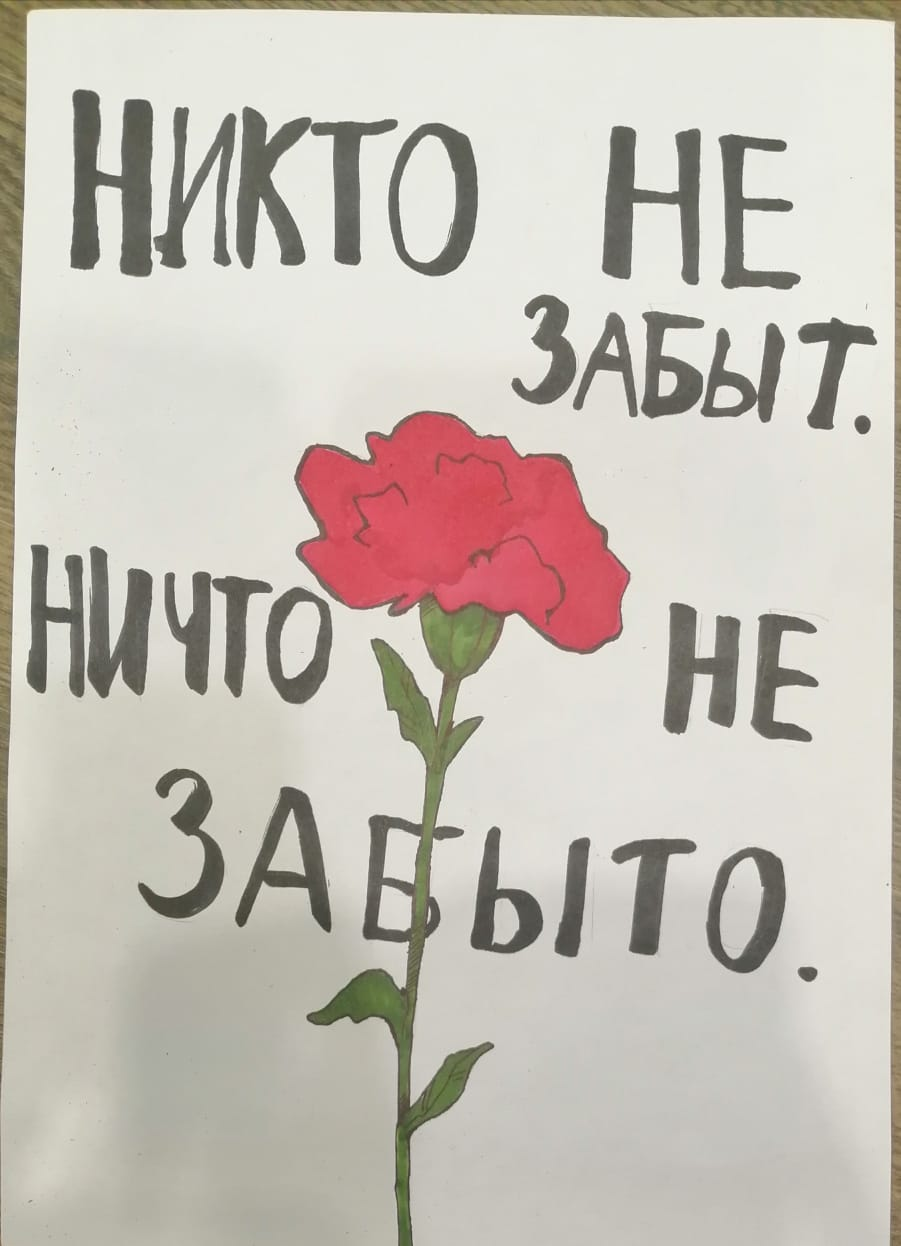 НИКТО НЕ
ЗАБЫТ.
НИЧТО НЕ
ЗАБЫТО.